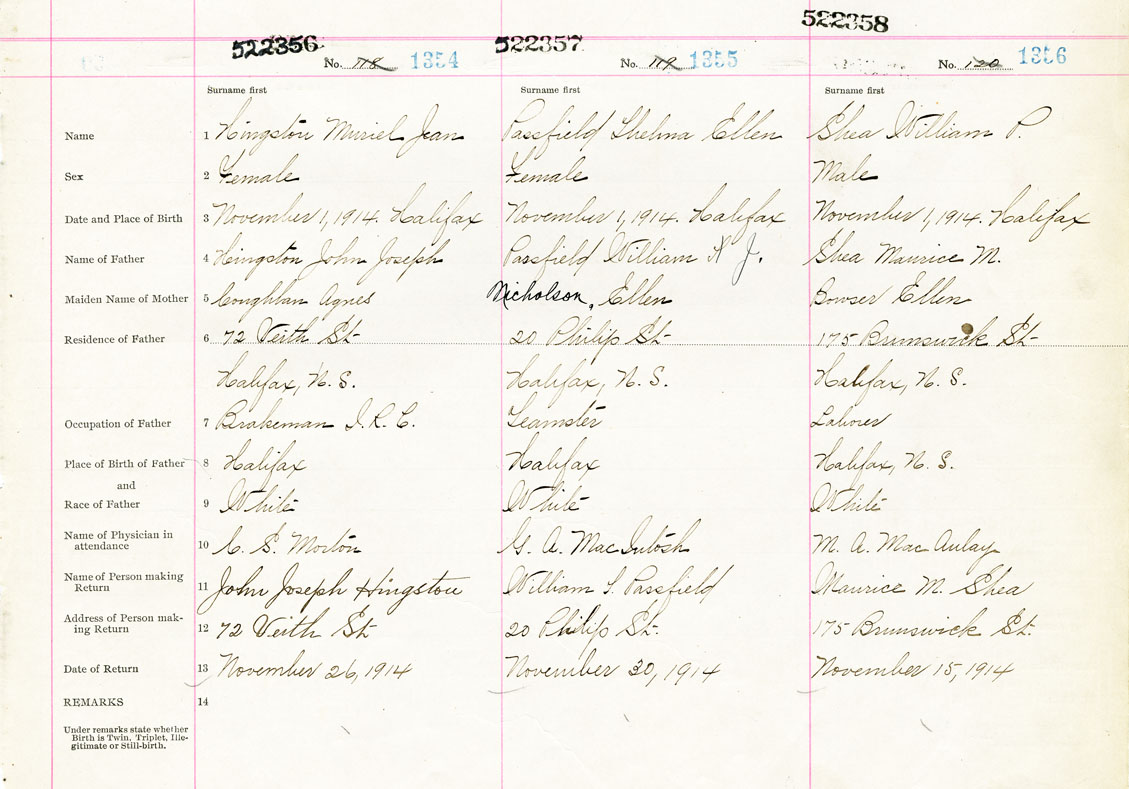 522356 522357 522358
No. 118 1354 No. 119 1355 No. 120 1356
Surname first Surname first Surname first
Name 1 Hingston Muriel Jean Passfield Thelma Ellen Shea William P.
Sex 2 Female Female Male
Date and Place of Birth 3 November 1, 1914. Halifax November 1, 1914. Halifax November 1, 1914. Halifax
Name of Father 4 Hingston John Joseph Passfield William J. Shea Maurice M.
Maiden Name of Mother 5 Coughlan Agnes Nicholson, Ellen Bowser Ellen
Residence of Father 6 72 Veith St 20 Philip St. 175 Brunswick St.
Halifax, N. S. Halifax, N. S. Halifax, N. S.
Occupation of Father 7 Brakeman I. R. C. Teamster Laborer
Place of Birth of Father 8 Halifax Halifax Halifax, N. S.
and
Race of Father 9 White White White
Name of Physician in
attendance 10 C. S. Morton G. A. MacIntosh M. A. MacAulay
Name of Person making
Return 11 John Joseph Hingston William J. Passfield Maurice M. Shea
Address of Person mak-
ing Return 12 72 Veith St 20 Philip St. 175 Brunswick St.
Date of Return 13 November 26, 1914 November 30, 1914 November 15, 1914
REMARKS 14
Under remarks state whether
Birth is Twin, Triplet, Ille-
gitimate or Still-birth.